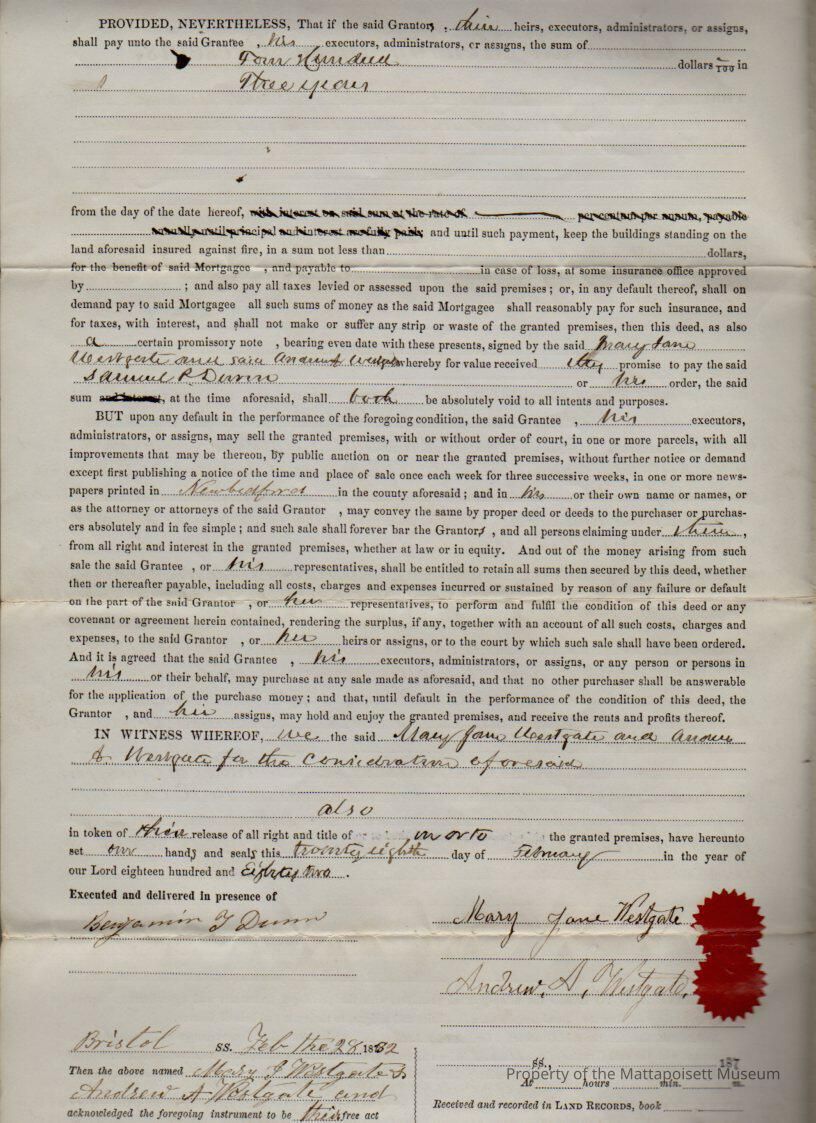 PROVIDED, NEVERTHELESS, That if the said Grantors, their heirs, executors, administrators, or assigns,
shall pay unto the said Grantee , his executors, administrators, or assigns, the sum of
Four Hundred dollars /100 in
Three years
from the day of the date hereof, with interest on said sum at the rate of per centum per annum, payable
annually until principal and interest are fully paid; and until such payment, keep the buildings standing on the
land aforesaid insured against fire, in a sum not less than dollars,
for the benefit of said Mortgagee , and payable to in case of loss, at some insurance office approved
by ; and also pay all taxes levied or assessed upon the said premises; or, in any default thereof, shall on
demand pay to said Mortgagee all such sums of money as the said Mortgagee shall reasonably pay for such insurance, and
for taxes, with interest, and shall not make or suffer any strip or waste of the granted premises, then this deed, as also
a certain promissory note , bearing even date with these presents, signed by the said Mary Jane
Westgate and said Andrew whereby for value received they promise to pay the said
Samuel P. Dunn or his order, the said
sum and interest, at the time aforesaid, shall both be absolutely void to all intents and purposes.
BUT upon any default in the performance of the foregoing condition, the said Grantee , his executors,
administrators, or assigns, may sell the granted premises, with or without order of court, in one or more parcels, with all
improvements that may be thereon, by public auction on or near the granted premises, without further notice or demand
except first publishing a notice of the time and place of sale once each week for three successive weeks, in one or more news-
papers printed in Newbedford in the county aforesaid; and in his or their own name or names, or
as the attorney or attorneys of the said Grantor , may convey the same by proper deed or deeds to the purchaser or purchas-
ers absolutely and in fee simple; and such sale shall forever bar the Grantors , and all persons claiming under them ,
from all right and interest in the granted premises, whether at law or in equity. And out of the money arising from such
sale the said Grantee , or his representatives, shall be entitled to retain all sums then secured by this deed, whether
then or thereafter payable, including all costs, charges and expenses incurred or sustained by reason of any failure or default
on the part of the said Grantor , or her representatives, to perform and fulfil the condition of this deed or any
covenant or agreement herein contained, rendering the surplus, if any, together with an account of all such costs, charges and
expenses, to the said Grantor , or her heirs or assigns, or to the court by which such sale shall have been ordered.
And it is agreed that the said Grantee , his executors, administrators, or assigns, or any person or persons in
his or their behalf, may purchase at any sale made as aforesaid, and that no other purchaser shall be answerable
for the application of the purchase money; and that, until default in the performance of the condition of this deed, the
Grantor , and her assigns, may hold and enjoy the granted premises, and receive the rents and profits thereof.
IN WITNESS WHEREOF, we the said Mary Jane Westgate and Andrew
A. Westgate for the consideration aforesaid
also
in token of their release of all right and title of in or to the granted premises, have hereunto
set our hands and seals this twenty eighth day of February in the year of
our Lord eighteen hundred and Eighty two .
Executed and delivered in presence of
Benjamin T Dunn
Mary Jane Westgate
Andrew. A. Westgate.
Bristol ss. Feb the 28 1882
Then the above named Mary J Westgate &
Andrew A Westgate and
acknowledged the foregoing instrument to be their free act
ss., 187
At hours min. m.
Received and recorded in LAND RECORDS, book
Property of the Mattapoisett Museum